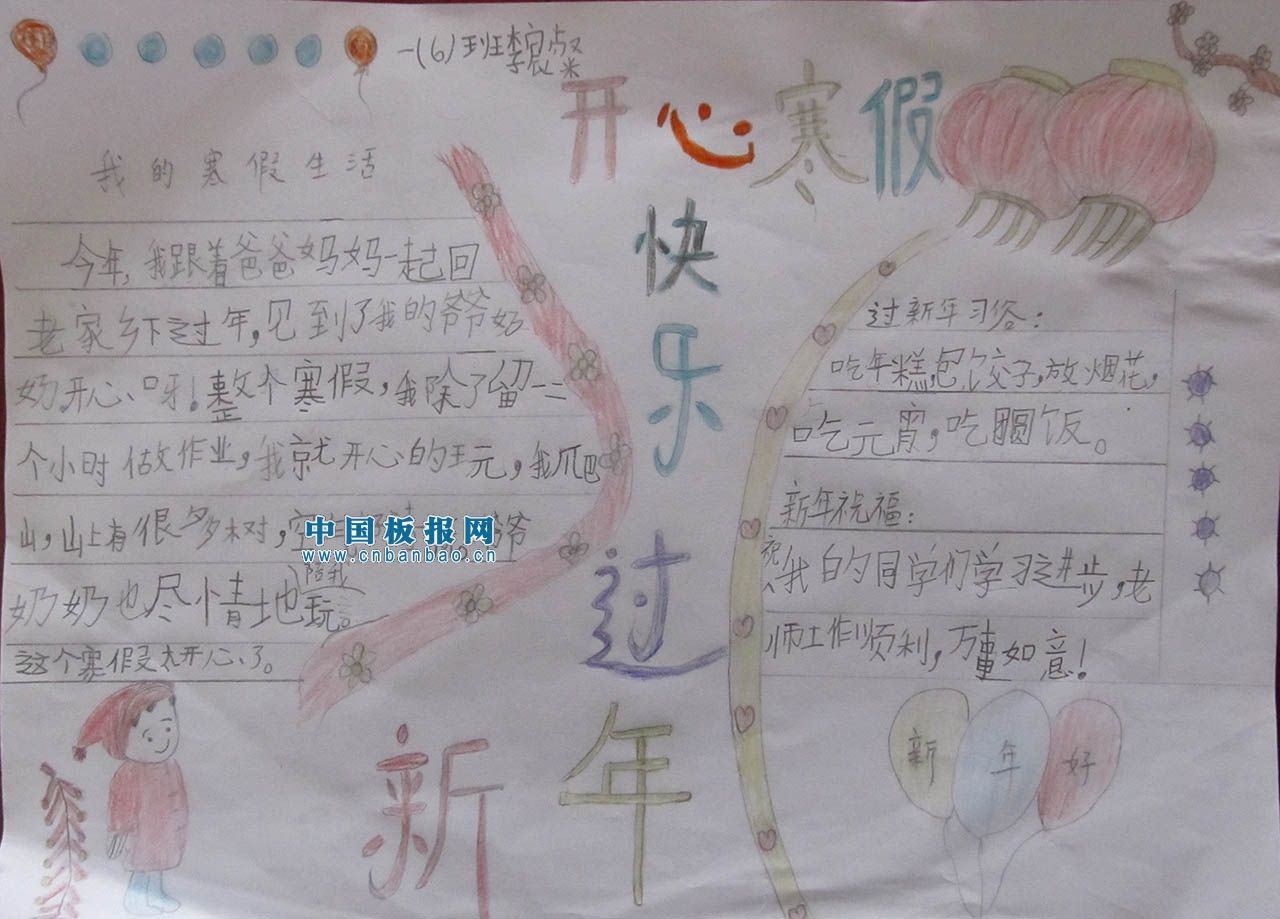 一(6)班李宸
开心寒假
快乐过新年
我的寒假生活
今年,我跟着爸爸妈妈一起回
老家乡下过年,见到了我的爷爷奶
奶,开心呀!整个寒假,我除了留一二
个小时做作业,我就开心的玩,我爬
山,山上有很多树,空 爷
奶奶也尽情地陪我玩。
这个寒假太开心了。
中国板报网
www.cnbanbao.cn
过新年习俗:
吃年糕,包饺子,放烟花,
吃元宵,吃团圆饭。
新年祝福:
祝我的同学们学习进步,老
师工作顺利,万事如意!
新年好